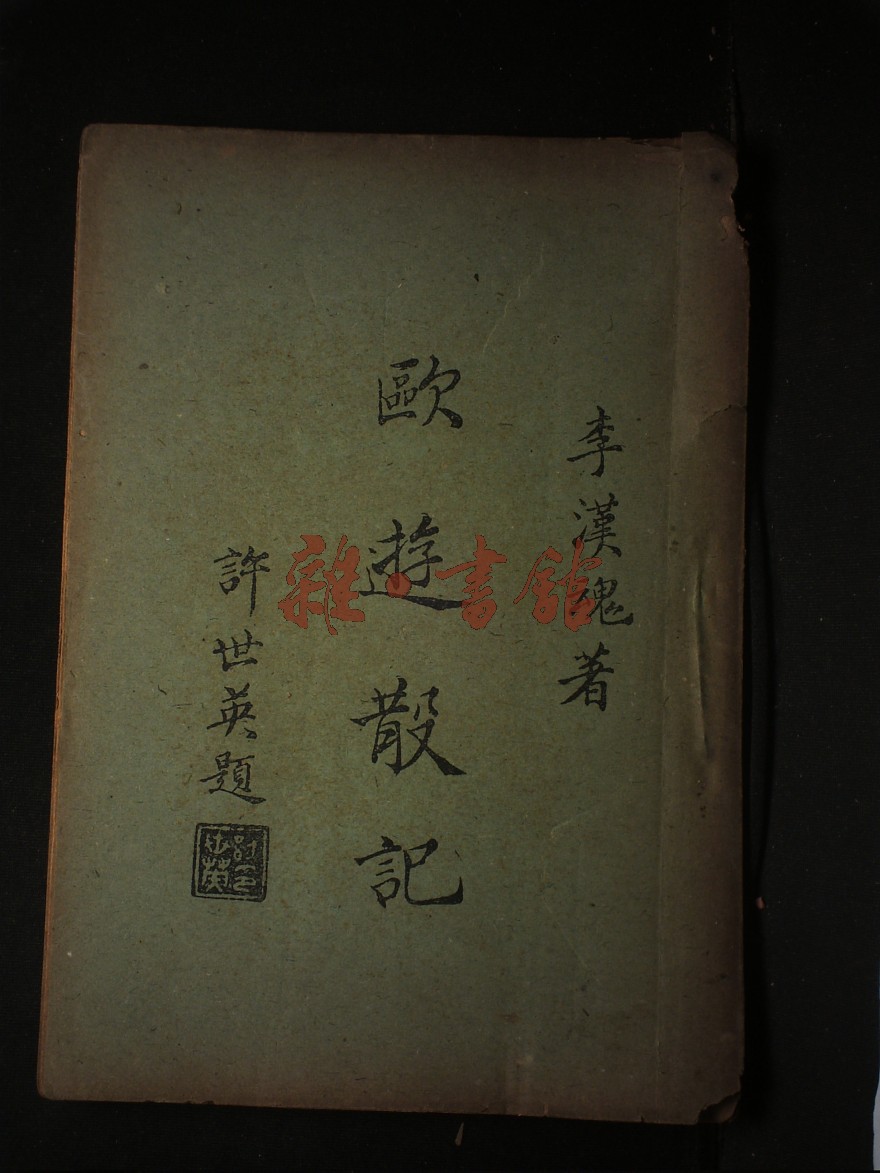 李漢魂著
歐遊散記
許世英題
雜·書館